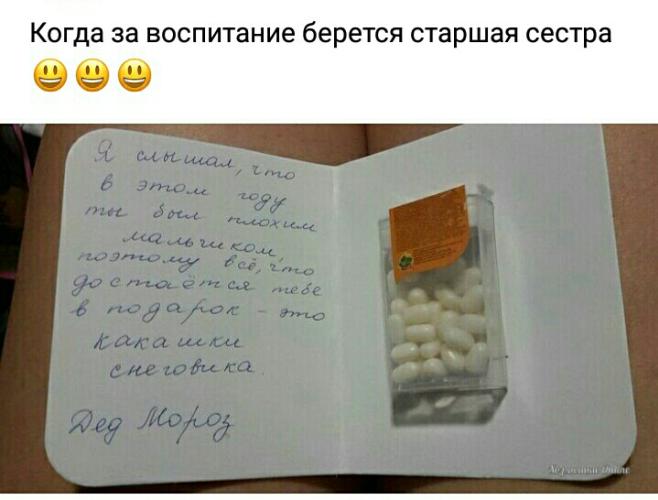 Когда за воспитание берется старшая сестра
😃 😃 😃
Я слышал, что
в этом году
ты был плохим
мальчиком,
поэтому всё, что
достаётся тебе
в подарок - это
какашки
снеговика.
Дед Мороз